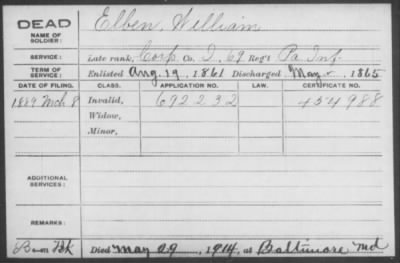 DEAD Elben, William
NAME OF SOLDIER:
SERVICE: Late rank, Corp. Co. I, 69 Reg't Pa. Inf.
TERM OF SERVICE: Enlisted Aug. 19, 1861 Discharged May, 1865
DATE OF FILING. CLASS. APPLICATION NO. LAW. CERTIFICATE NO.
1889 Mch 8 Invalid, 692232 454988
Widow,
Minor,
ADDITIONAL SERVICES:
REMARKS:
Bk Died May 29, 1914, at Baltimore Md